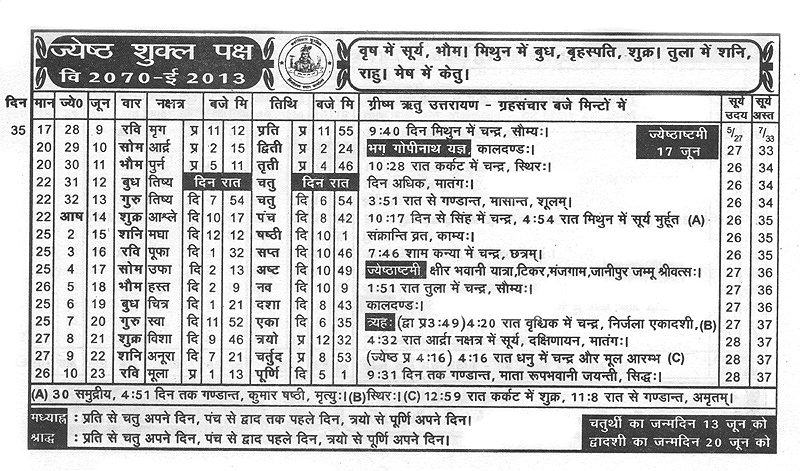 ज्येष्ठ शुक्ल पक्ष
वि 2070-ई 2013
वृष में सूर्य, भौम। मिथुन में बुध, बृहस्पति, शुक्र। तुला में शनि,
राहु। मेष में केतु।
दिन मान ज्ये० जून वार नक्षत्र बजे मि तिथि बजे मि ग्रीष्म ऋतु उत्तरायण - ग्रहसंचार बजे मिन्टों में सूर्य उदय सूर्य अस्त
35 17 28 9 रवि मृग प्र 11 12 प्रति प्र 11 55 9:40 दिन मिथुन में चन्द्र, सौम्यः। 5/27 7/33
ज्येष्ठाष्टमी
17 जून
20 29 10 सोम आर्द्र प्र 2 15 द्विती प्र 2 24 भग गोपीनाथ यज्ञ, कालदण्डः। 27 33
20 30 11 भौम पुर्न प्र 5 11 तृती प्र 4 46 10:28 रात कर्कट में चन्द्र, स्थिरः। 27 34
22 31 12 बुध तिष्य दिन रात चतु दिन रात दिन अधिक, मातंगः। 26 34
22 32 13 गुरु तिष्य दि 7 54 चतु दि 6 54 3:51 रात से गण्डान्त, मासान्त, शूलम्। 26 34
22 आष 14 शुक्र आश्ले दि 10 17 पंच दि 8 42 10:17 दिन से सिंह में चन्द्र, 4:54 रात मिथुन में सूर्य मुर्हूत (A) 26 35
25 2 15 शनि मघा दि 12 12 षष्ठी दि 10 1 संक्रान्ति व्रत, काम्यः। 26 35
25 3 16 रवि पूफा दि 1 32 सप्त दि 10 46 7:46 शाम कन्या में चन्द्र, छत्रम्। 26 35
25 4 17 सोम उफा दि 2 13 अष्ट दि 10 49 ज्येष्ठाष्टमी क्षीर भवानी यात्रा,टिकर,मंजगाम,जानीपुर जम्मू श्रीवत्सः। 27 36
26 5 18 भौम हस्त दि 2 9 नव दि 10 9 1:51 रात तुला में चन्द्र, सौम्यः। 27 36
25 6 19 बुध चित्र दि 1 21 दशा दि 8 43 कालदण्डः। 27 36
25 7 20 गुरु स्वा दि 11 52 एका दि 6 35 त्र्यहः (द्वा प्र3:49) 4:20 रात वृश्चिक में चन्द्र, निर्जला एकादशी,(B) 27 37
27 8 21 शुक्र विशा दि 9 46 त्रयो प्र 12 32 4:32 रात आर्द्रा नक्षत्र में सूर्य, दक्षिणायन, मातंगः। 28 37
27 9 22 शनि अनूरा दि 7 21 चर्तुद प्र 8 53 (ज्येष्ठ प्र 4:16) 4:16 रात धनु में चन्द्र और मूल आरम्भ (C) 28 37
26 10 23 रवि मूला प्र 1 13 पूर्णि दि 5 1 9:31 दिन तक गण्डान्त, माता रूपभवानी जयन्ती, सिद्धः। 28 37
(A) 30 समुद्रीय, 4:51 दिन तक गण्डान्त, कुमार षष्ठी, मृत्युः। (B)स्थिरः। (C) 12:59 रात कर्कट में शुक्र, 11:8 रात से गण्डान्त, अमृतम्।
मध्याह्न : प्रति से चतु अपने दिन, पंच से द्वाद तक पहले दिन, त्रयो से पूर्णि अपने दिन।
श्राद्ध : प्रति से चतु अपने दिन, पंच से द्वाद पहले दिन, त्रयो से पूर्णि अपने दिन।
चतुर्थी का जन्मदिन 13 जून को
द्वादशी का जन्मदिन 20 जून को